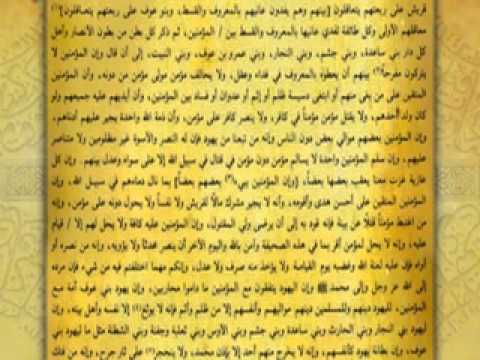 قريش على ربعتهم يتعاقلون (بينهم وهم يفدون عانيهم بالمعروف والقسط، وبنو عوف على ربعتهم يتعاقلون)
معاقلهم الأولى وكل طائفة تفدي عانيها بالمعروف والقسط بين / المؤمنين، ثم ذكر كل بطن من بطون الأنصار وأهل
كل دار بني ساعدة، وبني جشم، وبني النجار، وبني عمرو بن عوف، وبني النبيت، إلى أن قال وإن المؤمنين لا
يتركون مفرحاً بينهم أن يعطوه بالمعروف في فداء وعقل، ولا يحالف مؤمن مولى مؤمن من دونه، وأن المؤمنين
المتقين على من بغى منهم أو ابتغى دسيعة ظلم أو إثم أو عدوان أو فساد بين المؤمنين، وأن أيديهم عليه جميعهم ولو
كان ولد أحدهم، ولا يقتل مؤمن مؤمناً في كافر، ولا ينصر كافر على مؤمن، وأن ذمة الله واحدة يجير عليهم أدناهم،
وإن المؤمنين بعضهم موالي بعض دون الناس وإنه من تبعنا من يهود فإن له النصر والأسوة غير مظلومين ولا متناصر
عليهم، وإن سلم المؤمنين واحدة لا يسالم مؤمن دون مؤمن في قتال في سبيل الله إلا على سواء وعدل بينهم، وإن كل
غازية غزت معنا يعقب بعضها بعضاً، (وإن المؤمنين يبيء بعضهم بعضاً) بما نال دماءهم في سبيل الله، وإن المؤمنين
المتقين على أحسن هدى وأقومه، وأنه لا يجير مشرك مالاً لقريش ولا نفساً ولا يحول دونه على مؤمن، وإنه
من اغتبط مؤمناً قتلاً عن بينة فإنه قود به إلى أن يرضى ولي المقتول، وإن المؤمنين عليه كافة ولا يحل لهم إلا / قيام
عليه، وإنه لا يحل لمؤمن أقر بما في هذه الصحيفة وآمن بالله واليوم الآخر أن ينصر محدثاً ولا يؤويه، وإنه من نصره أو
آواه فإن عليه لعنة الله وغضبه يوم القيامة ولا يؤخذ منه صرف ولا عدل، وإنكم مهما اختلفتم فيه من شيء فإن مرده
إلى الله عز وجل وإلى محمد ﷺ وإن اليهود ينفقون مع المؤمنين ما داموا محاربين، وإن يهود بني عوف أمة مع
المؤمنين، لليهود دينهم وللمسلمين دينهم مواليهم وأنفسهم إلا من ظلم وأثم فإنه لا يوتغ إلا نفسه وأهل بيته، وإن
ليهود بني النجار وبني الحارث وبني ساعدة وبني جشم وبني الأوس وبني ثعلبة وجفنة وبني الشطنة مثل ما ليهود بني
عوف، وإن بطانة يهود كأنفسهم، وإنه لا يخرج منهم أحد إلا بإذن محمد، ولا ينحجز على ثار جرح، وإنه من فتك